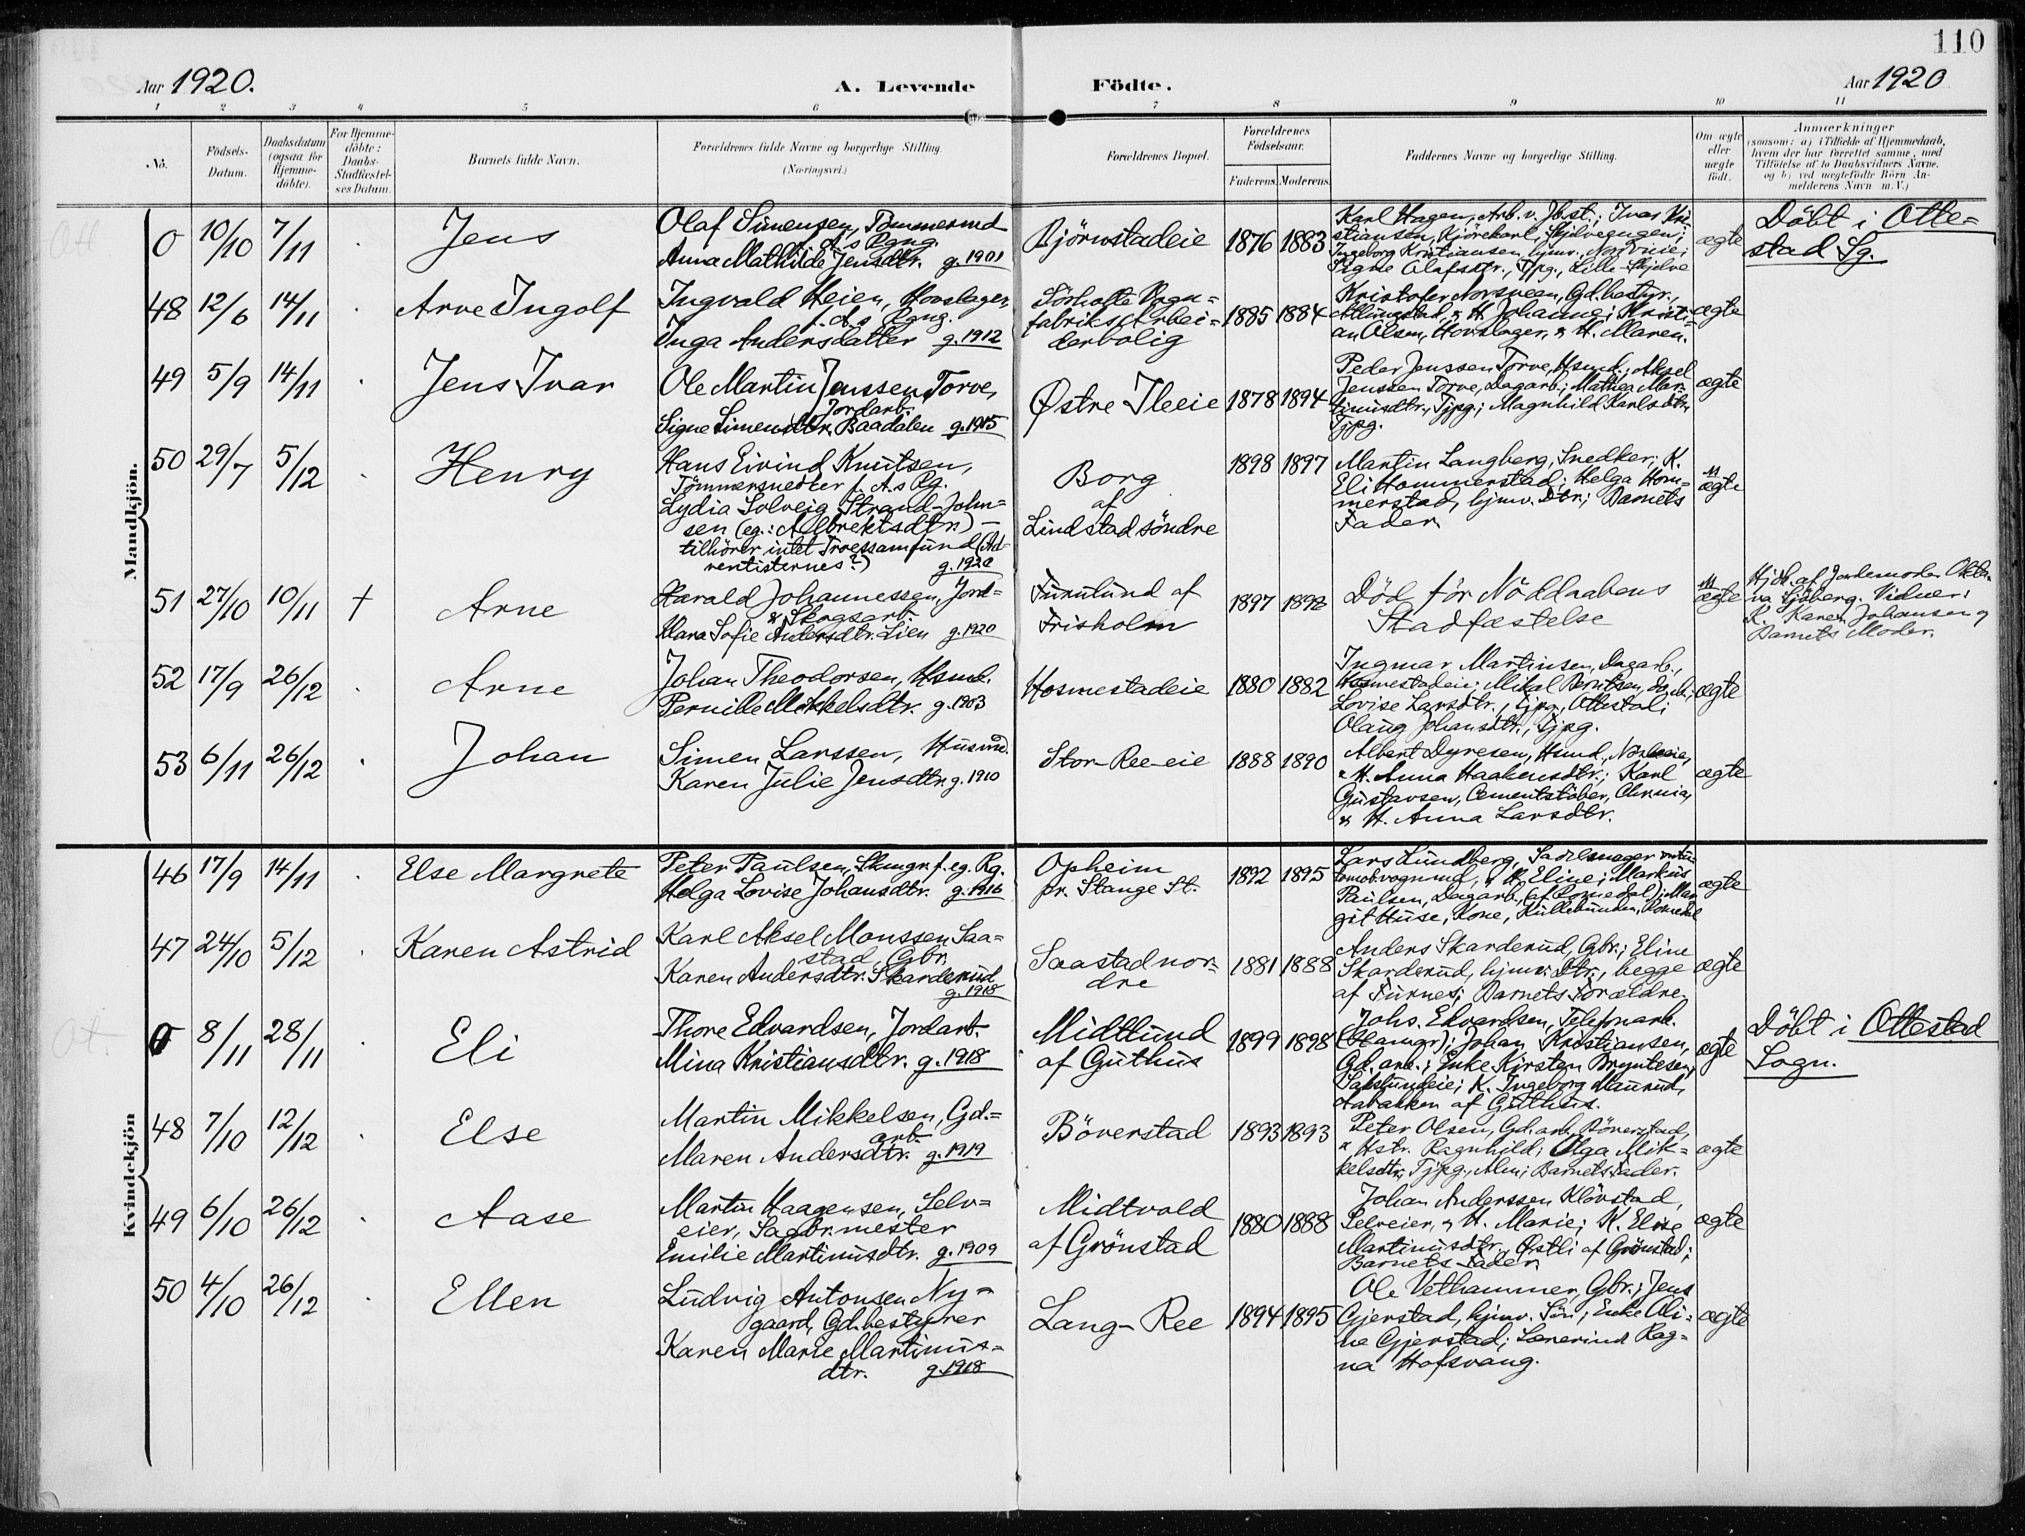 110
Aar 1920.
A. Levende
Födte.
Aar 1920
1 2 3 4 5 6 7 8 9 10 11
No.
Födsels-
Datum.
Daabsdatum
(ogsaa for
Hjemme-
döbte).
For Hjemme-
döbte:
Daabs-
Stadfæstel-
ses Datum.
Barnets fulde Navn.
Forældrenes fulde Navne og borgerlige Stilling
(Næringsvei.)
Forældrenes Bopæl.
Forældrenes
Födselsaar.
Faderens. Moderens.
Faddernes Navne og borgerlige Stilling.
Om ægte
eller
uægte
födt.
Anmærkninger
(saasom: a) i Tilfælde af Hjemmedaab,
hvem der har forrettet samme, med
Tilföielse af to Daabsvidners Navne.
og b) ved uægtefödte Börn An-
melderens Navn m. V.)
Mandkjön.
0 10/10 7/11
Jens
Olaf Simensen, Tömmersmd
f. A.s Rgng.
Anna Mathilde Jensdtr. g. 1901
Björnstadeie
1876 1883
Karl Hagen, Arb. v. Jbst.; Ivar Kri
stiansen, Kjörekarl, Skjelvegngen;
Ingeborg Kristiansen, hjmv.,
Signe Olafsdtr., Tjpg., Lille Skjelve
ægte
Döbt i Otte=
stad Sg.
48 12/6 14/11
Arve Ingolf
Ingvald Heien, Hovslager,
f. A.s Rgng.
Inga Andersdatter g. 1912
Sörholte Vogn=
fabriks Arbei=
derbolig
1885 1884
Kristofer Gd.bestyr.,
& H. Johanne; Kristi-
an Olsen, Hovslager, & H. Maren.
ægte
49 5/9 14/11
Jens Ivar
Ole Martin Jenssen Torve,
Jordarb.
Signe Simensdtr. Baadalen g. 1915
Østre Ileeie
1878 1894
Peder Jenssen Torve, Hsmd.; Aksel
Jenssen Torve, Dagarb.; Mathea Mar-
tinusdtr., Tjpg.; Magnhild Karlsdtr.,
Tjpg.
ægte
50 29/7 5/12
Henry
Hans Eivind Knutsen,
Tömmersnedker f. A.s Rg.
Lydia Solveig Strand-John=
sen (eg.: Albrektsdtr.) —
tilhörer intet Troessamfund (Ad-
ventisterne?)
g. 1920
Borg
af
Lindstad söndre
1898 1897
Martin Langberg, Snedker; K.
Eli Hommerstad; Helga Hom=
merstad, hjmv. Dtr.; Barnets
Fader.
uægte
51 27/10 10/11 †
Arne
Harald Johannessen, Jord=
& Skogsarb.
Klara Sofie Andersdtr. Lien g. 1920
Furulund af
Frisholm
1897 1892
Död för Nöddaabens
Stadfæstelse
uægte
Hjdb. af Jordemoder
Sjöberg. Vidner:
K. Karen Johansen og
Barnets Moder.
52 17/9 26/12
Arne
Johan Theodorsen, Hsmd.
Pernille Mikkelsdtr. g. 1903
Hosmestadeie
1880 1882
Ingmar Martinsen, Dagarb.,
Hosmestadeie; Mikal Berntsen, do., do.;
Lovise Larsdtr., Tjpg., Ottestad;
Olaug Johansdtr., Tjpg.
ægte
53 6/11 26/12
Johan
Simen Larssen, Husmd.
Karen Julie Jensdtr. g. 1910
Stor-Ree-eie
1888 1890
Albert Dyresen, Hsmd.,
& H. Anna Haakensdtr.; Karl
Gustavsen, Cementstöber,
& H. Anna Larsdtr.
ægte
Kvindekjön
46 17/9 14/11
Else Margrete
Peter Paulsen, Skmgr. f. eg. Rg.
Helga Lovise Johansdtr. g. 1916
Opheim
pr. Stange St.
1892 1895
Lars Lundberg, Sadelmager
& H. Eline; Markus
Paulsen, Dagarb. (af Romedal); Mar-
git Huse, Kone, Romedal
ægte
47 24/10 5/12
Karen Astrid
Karl Aksel Monssen Saa=
stad, Gbr.
Karen Andersdtr. Skarderud
g. 1918
Saastad nor-
dre
1881 1888
Anders Skarderud, Gbr.; Eline
Skarderud, hjmv. Dtr., begge
af Furnes; Barnets Forældre.
ægte
0 8/11 28/11
Eli
Thore Edvardsen, Jordarb.
Mina Kristiansdtr. g. 1918
Midtlund
af Guthus
1899 1898
Johs. Edvardsen, Telefonarb.
(Hamar); Johan Kristiansen,
Gd.arb.; Enke Kirsten Bryntesen,
K. Ingeborg Maurud,
Aabakken af Guthus.
ægte
Döbt i Ottestad
Sogn.
48 7/10 12/12
Else
Martin Mikkelsen, Gd.=
arb.
Maren Andersdtr. g. 1919
Böverstad
1893 1893
Peter Olsen, Gd.arb. Böverstad,
& Hstr. Ragnhild; Olga Mik=
kelsdtr., Tjpg., Alm; Barnets Fader.
ægte
49 6/10 26/12
Aase
Martin Haagensen, Selv=
eier, Sagbr.mester
Emilie Martinusdtr. g. 1909
Midtvold
af Grönstad
1880 1888
Johan Anderssen Klövstad,
Selveier, & H. Marie; K. Elise
Martinusdtr., Østli af Grönstad;
Barnets Fader.
ægte
50 4/10 26/12
Ellen
Ludvig Antonsen Ny=
gaard, Gd.bestyrer
Karen Marie Martinus=
dtr. g. 1918
Lang-Ree
1894 1895
Ole Vethammer, Gbr.; Jens
Gjerstad, hjmv. Sön; Enke Oli-
ne Gjerstad; Lærerinde Rag=
na Hofsvang.
ægte